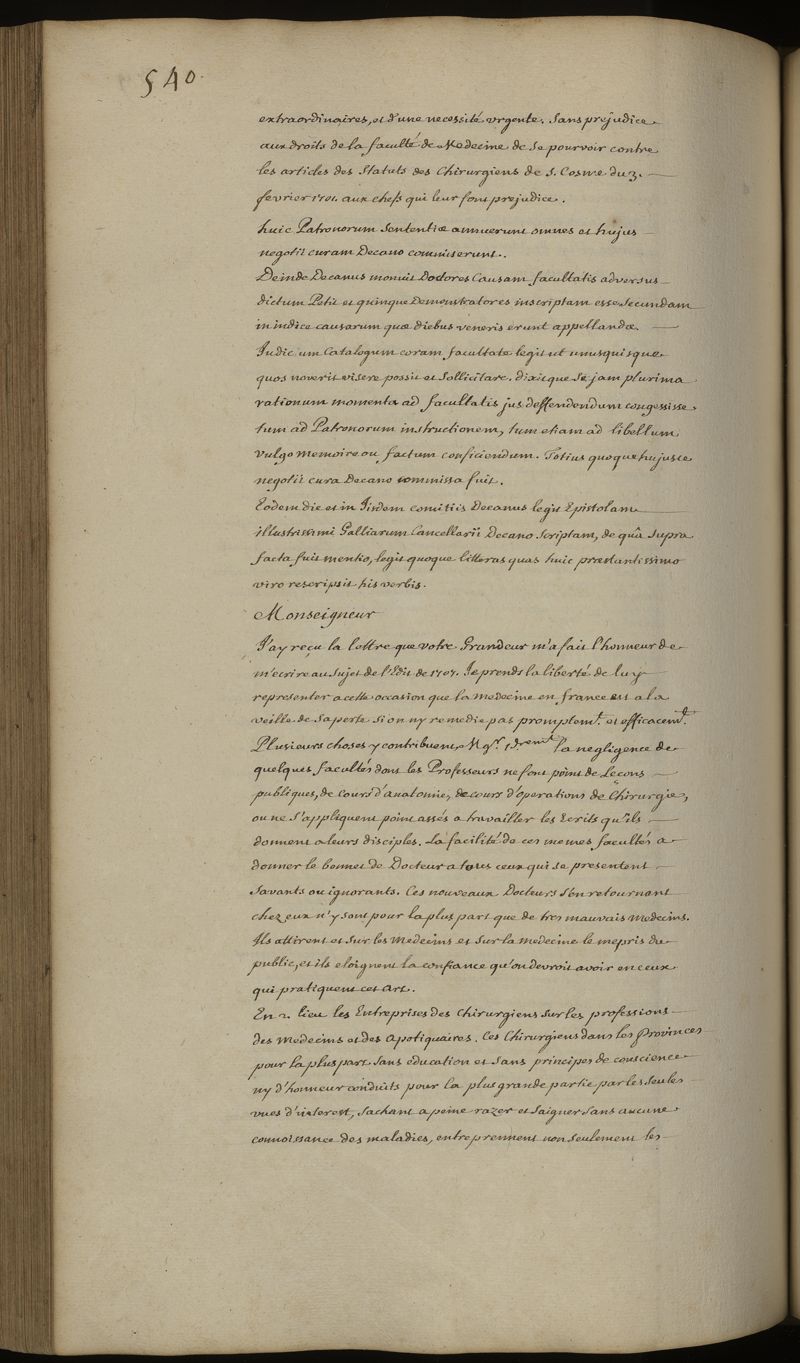 540.
extraordinaires, et d'une necessité urgente. Sans prejudice
aux droits de la faculté de Medecine de se pourvoir contre
les articles des Statuts des Chirurgiens de S. Cosme du 3.
fevrier 1701. aux chefs qui leur font prejudice.
huic Patronorum Sententiæ annuerunt omnes et hujus
negotii curam Decano commiserunt.
Deinde Decanus monuit Doctores Causam facultatis adversus
dictum Petit et quinque Demonstratores inscriptam esse secundam
in indice causarum quæ diebus veneris erunt appellandæ.
Judicum Catalogum coram facultate legit ut unusquisque
quos noverit visere possit et Sollicitare. dixitque se jam plurima
rationum momenta ad facultatis jus deffendendum congessisse
tum ad Patronorum instructionem, tum etiam ad libellum
vulgo memoire ou factum conficiendum. Totius quoque hujusce
negotii cura Decano commissa fuit.
Eodem die et in Iisdem comitiis Decanus legit Epistolam
illustrissimi Galliarum Cancellarii Decano Scriptam, de quâ supra
facta fuit mentio, legit quoque litteras quas huic præstantissimo
viro rescripsit his verbis.
Monseigneur
J'ay reçu la lettre que votre Grandeur m'a fait l'honneur de
m'ecrire au sujet de l'Edit de 1707. Je prends la liberté de luy
representer a cette occasion que la medecine en france est a la
veille de sa perte si on ny remedie pas promptemt. et efficacemt.
Plusieurs choses y contribuent Mgr. 1rement la negligence de
quelques facultés dont les Professeurs ne font point de Leçons
publiques, de Cours d'anatomie, de cours d'operations de Chirurgie,
ou ne s'appliquent point assés a travailler les Ecrits qu'ils
donnent a leurs disciples. La facilité de ces memes facultés a
donner le bonnet de Docteur a tous ceux qui se presentent
Savants ou ignorants. Ces nouveaux Docteurs s'en retournant
chez eux n'y sont pour la plus part que de tres mauvais medecins.
Ils attirent et sur les medecins et sur la medecine le mepris du
public, et ils eloignent la confiance qu'on devroit avoir en ceux
qui pratiquent cet art.
En 2. lieu les Entreprises des Chirurgiens sur les professions
des medecins et des apotiquaires. Ces Chirurgiens dans les Provinces
pour la plus part sans education et sans principes de conscience
ny d'honneur conduits pour la plus grande partie par les seules
vues d'interest, sachant a peine razer et saigner sans aucune
connoissance des maladies, entreprennent non seulement les